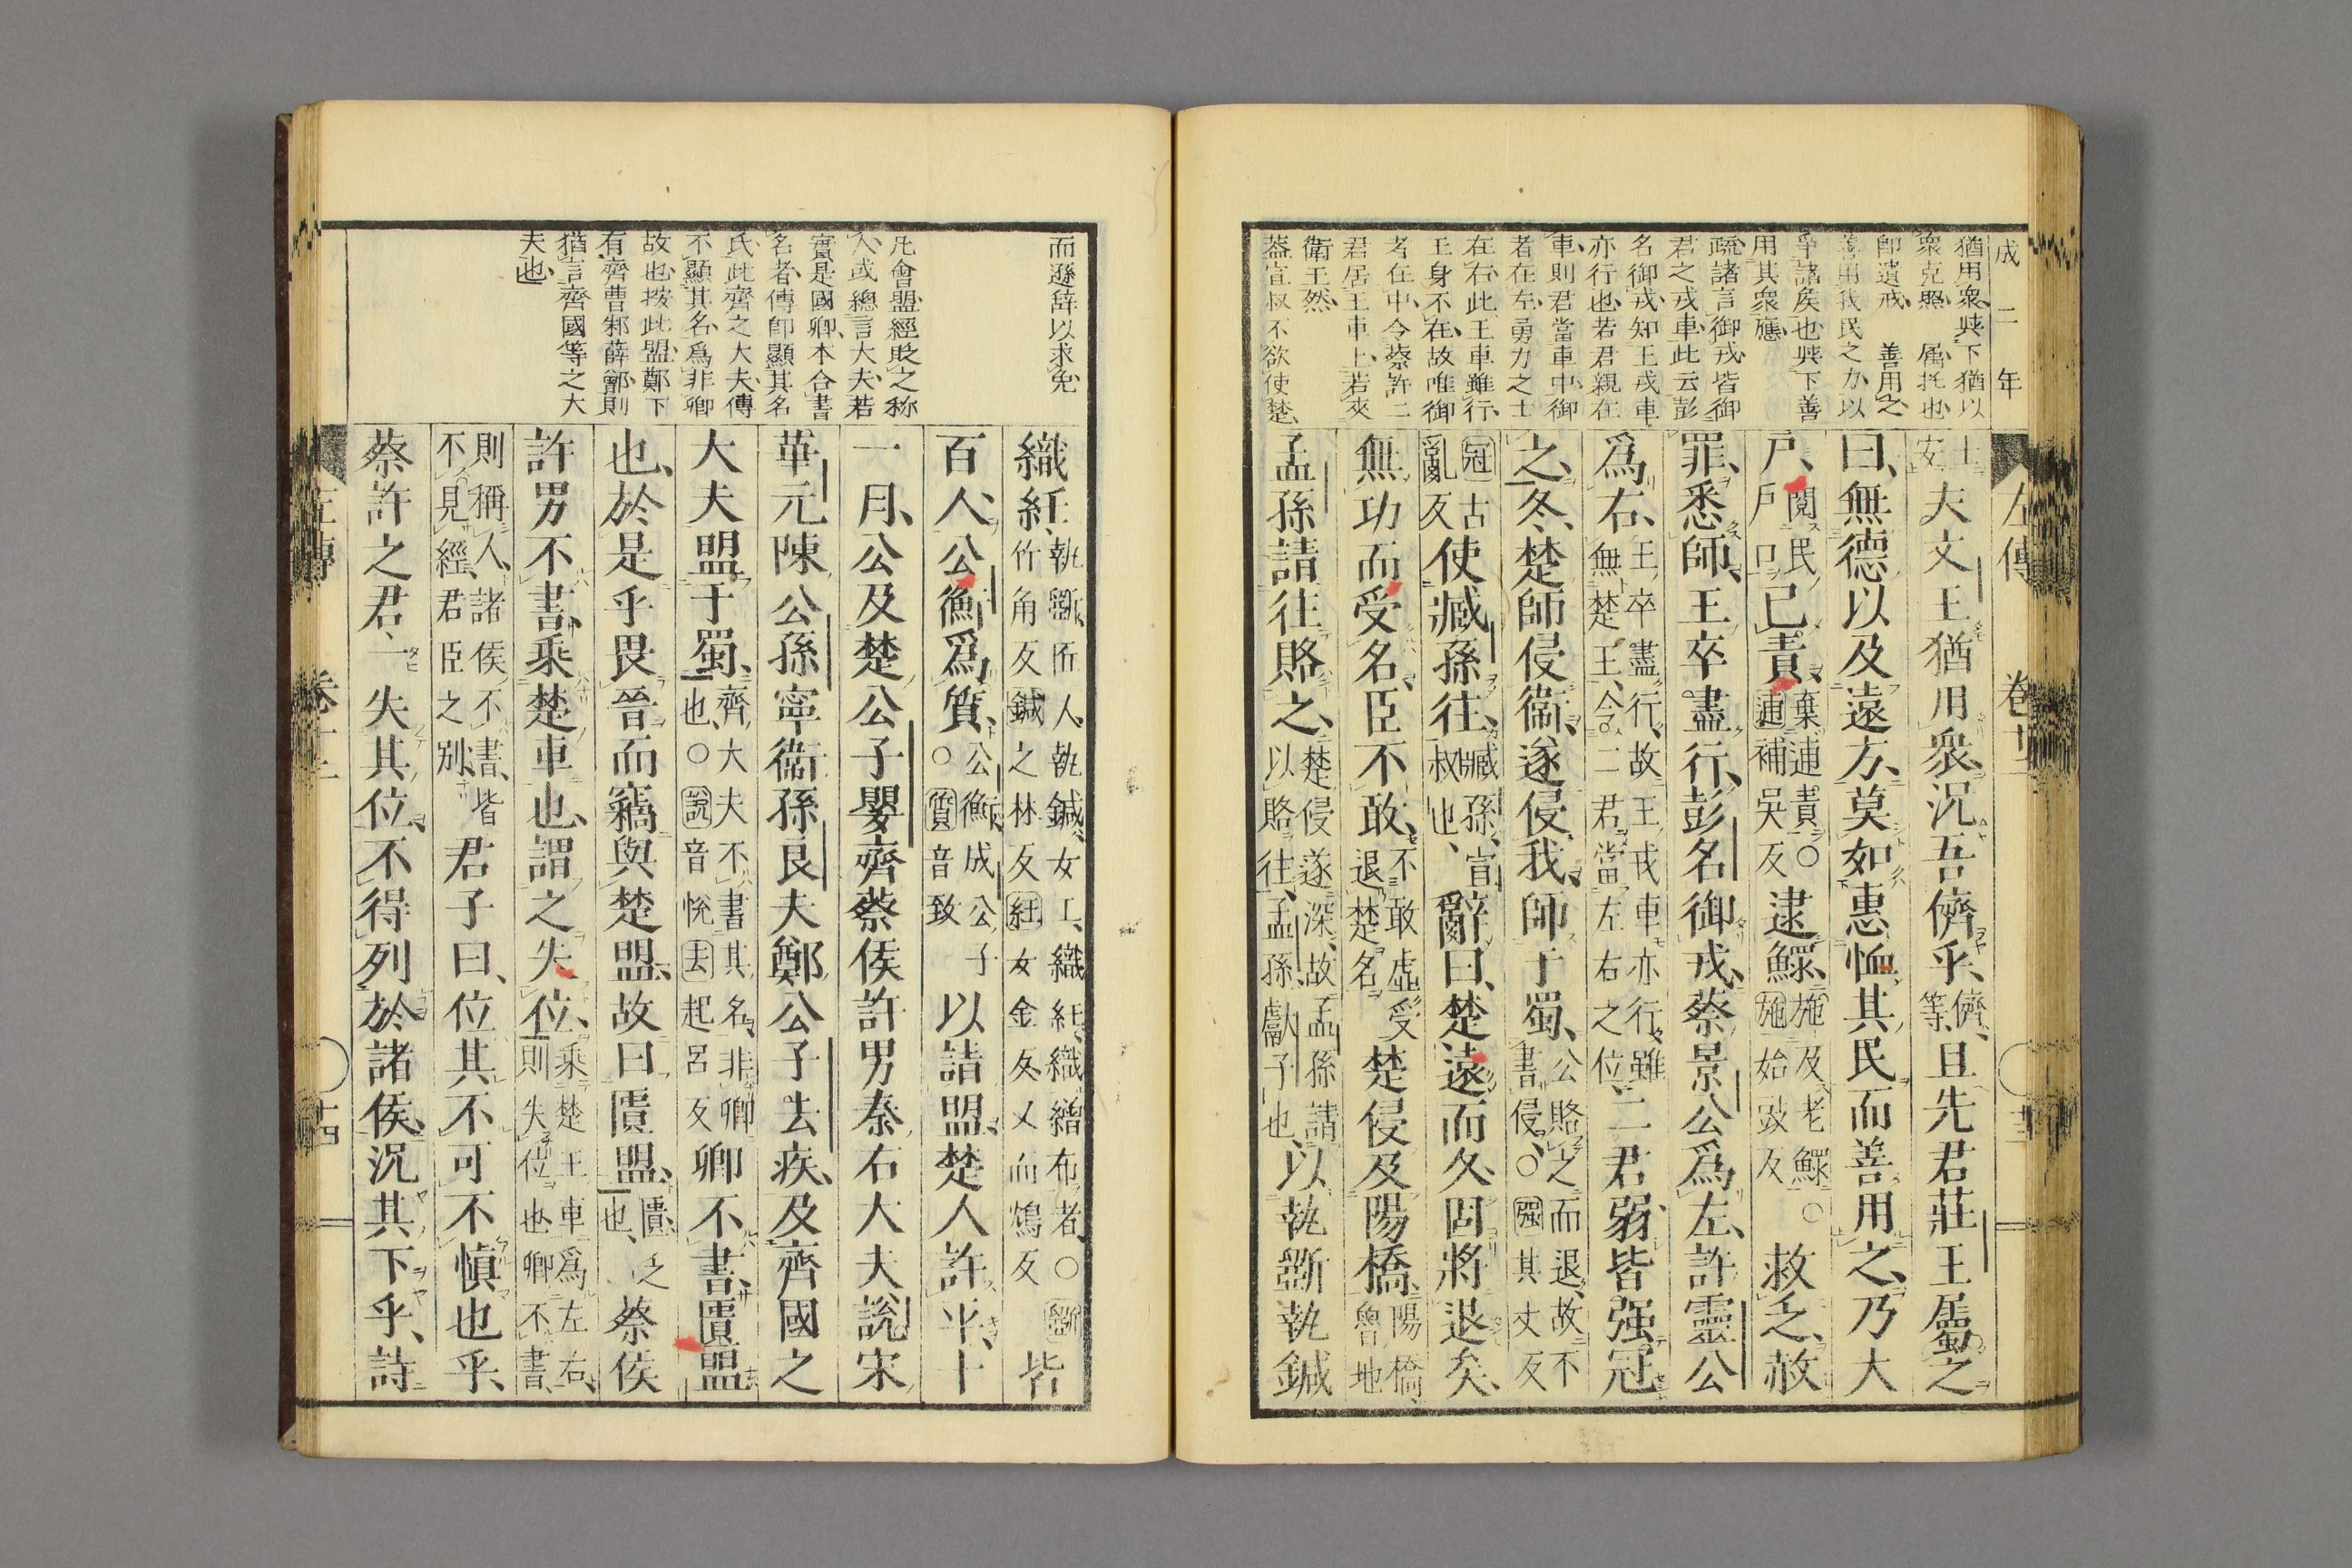 成二年
猶用衆與下猶以
衆克照 属托也
即遺戒 善用之
善用我民之力以
爭諸矦也與下善
用其衆應
疏諸言御戎皆御
君之戎車此云彭
名御戎知王戎車
亦行也若君親在
車則君當車中御
者在左勇力之士
在右此王車雖行
王身不在故唯御
者在中令蔡許二
君居王車上若夾
衛王然
葢宣叔不欲使楚
左傳 卷十二
士
安
夫文王猶用衆況吾儕乎
儕
等
且先君莊王屬之
曰無德以及遠方莫如惠恤其民而善用之乃大
戸
閱民
戸口
已責
棄逋責○
逋補吳反
逮鰥
施及老鰥○
施始豉反
救乏赦
罪悉師王卒盡行彭名御戎蔡景公爲左許靈公
爲右
王卒盡行故王戎車亦行雖
無楚王令二君當左右之位
二君弱皆强冠
之冬楚師侵衞遂侵我師于蜀
公賂之而退故不
書侵○强其丈反
冠古
亂反
使臧孫往
臧孫宣
叔也
辭曰楚遠而久固將退矣
無功而受名臣不敢
不敢虛受
退楚名
楚侵及陽橋
陽橋
魯地
孟孫請往賂之
楚侵遂深故孟孫請
以賂往孟孫獻子也
以執斲執鍼
而遜辞以求免
凡會盟經貶之称
人或總言大夫若
實是國卿本合書
名者傳即顯其名
氏此齊之大夫傳
不顯其名爲非卿
故也按此盟鄭下
有齊曹邾薛鄫則
猶言齊國等之大
夫也
織紝
執斲匠人執鍼女工織紝織繒布者○斲
竹角反鍼之林反紝女金反又而鴆反
皆
百人公衡爲質
公衡成公子
○質音致
以請盟楚人許平十
一月公及楚公子嬰齊蔡侯許男秦右大夫說宋
華元陳公孫寧衞孫良夫鄭公子去疾及齊國之
大夫盟于蜀
齊大夫不書其名非卿
也○說音悅去起呂反
卿不書匱盟
也於是乎畏晉而竊與楚盟故曰匱盟
匱乏
也
蔡侯
許男不書乘楚車也謂之失位
乘楚王車爲左右
則失位也卿不書
則稱人諸侯不書皆
不見經君臣之別
君子曰位其不可不愼也乎
蔡許之君一失其位不得列於諸侯況其下乎詩
左傳 卷十二 十四